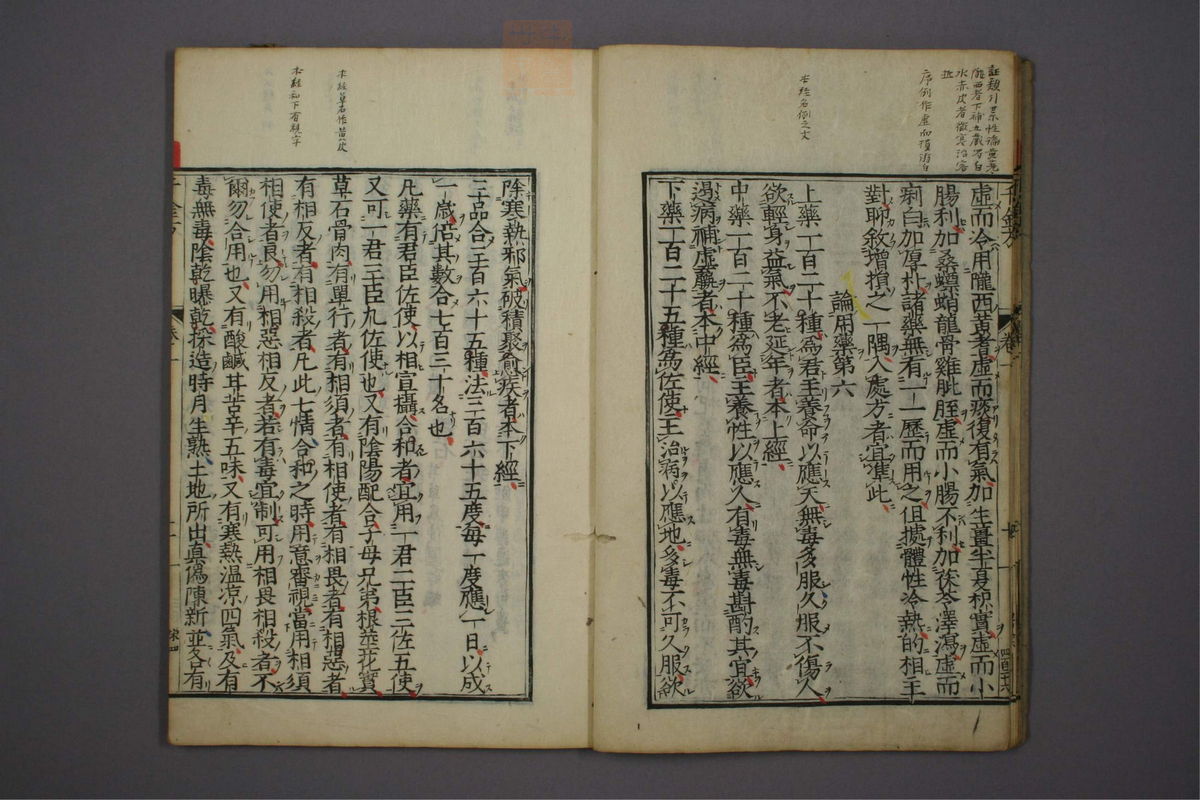 虚而冷用隴西黄耆虚而痰復有氣加生薑半夏枳實虚而小
腸利加桑螵蛸龍骨雞肶胵虚而小腸不利加茯苓澤瀉虚而
痢白加厚朴諸藥無有一一歷而用之但據體性冷熱的相主
對聊敘增損之一隅入處方者宜準此
論用藥第六
上藥一百二十種爲君主養命以應天無毒多服久服不傷人
欲輕身益氣不老延年者本上經
中藥一百二十種爲臣主養性以應人有毒無毒斟酌其宜欲
遏病補虚羸者本中經
下藥一百二十五種爲佐使主治病以應地多毒不可久服欲
除寒熱邪氣破積聚愈疾者本下經
三品合三百六十五種法三百六十五度每一度應一日以成
一歳倍其數合七百三十名也
凡藥有君臣佐使以相宣攝合和者宜用一君二臣三佐五使
又可一君三臣九佐使也又有陰陽配合子母兄弟根莖花實
草石骨肉有單行者有相須者有相使者有相畏者有相惡者
有相反者有相殺者凡此七情合和之時用意審視當用相須
相使者良勿用相惡相反者若有毒宜制可用相畏相殺者不
爾勿合用也又有酸鹹甘苦辛五味又有寒熱温涼四氣及有
毒無毒陰乾曝乾採造時月生熟土地所出真僞陳新並各有
本經名例之文
本經草石作苗皮
千金方
卷一